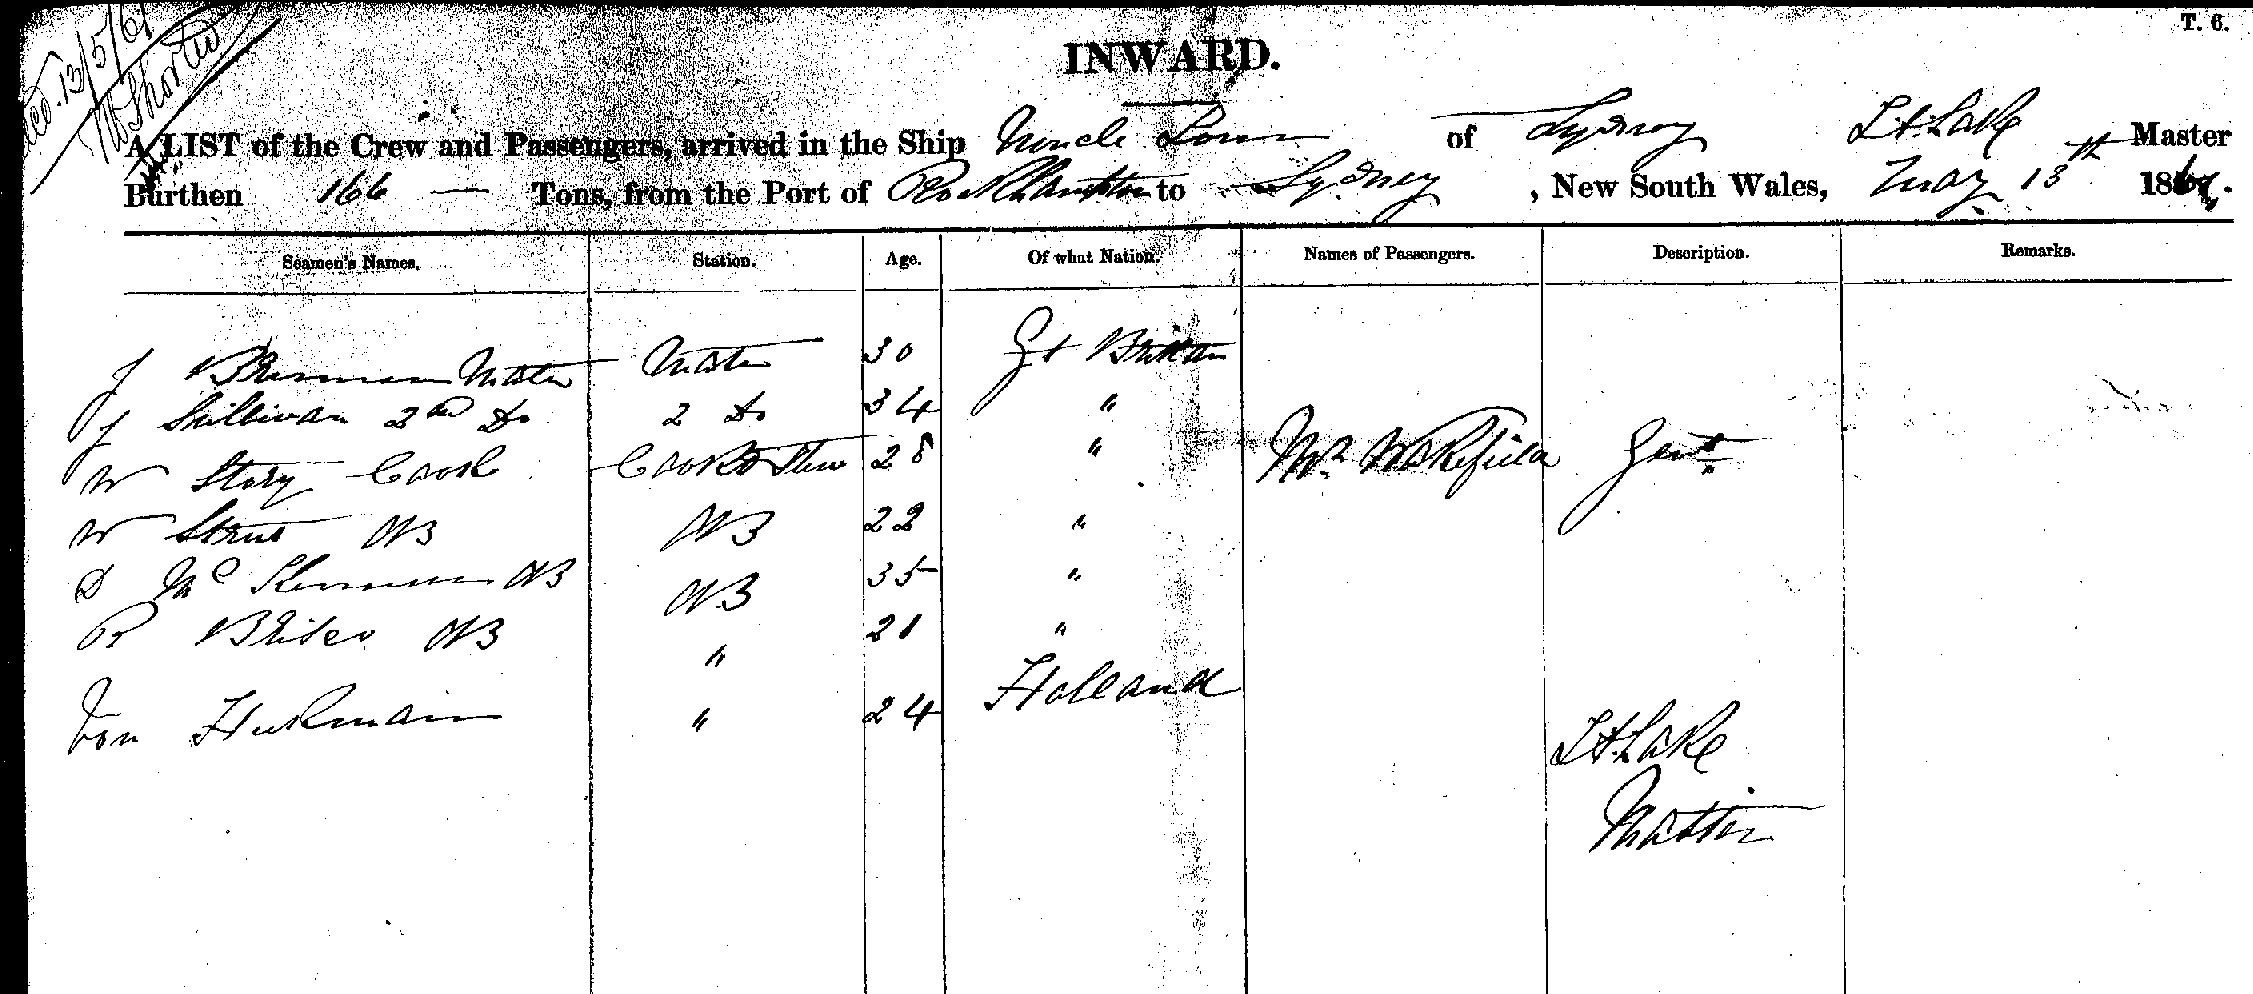 T. 6.
13/5/6
INWARD.
A LIST of the Crew and Passengers, arrived in the Ship Uncle Tom of Sydney Lake Master
Burthen 166 — Tons, from the Port of Rockhampton to Sydney, New South Wales, May 13th 186
Seamen's Names. Station. Age. Of what Nation. Names of Passengers. Description. Remarks.
J Mate Mate 30 Gt Britain
J Sullivan 2nd Do 2 Do 34 "
W Story Cook Cook & Stew 28 " Mr Wakefield Gent
W AB AB 22 "
D Mc AB AB 35 "
R AB " 21 "
Von " 24 Holland
Lake
Master